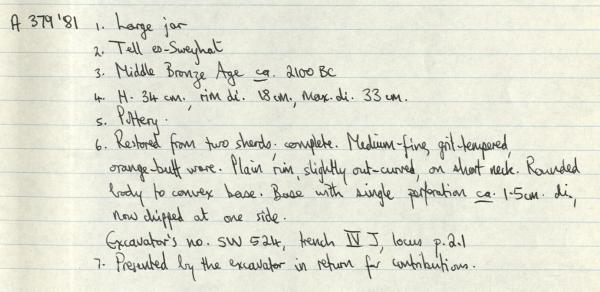 A 379 '81 1. Large jar
2. Tell es-Sweyhat
3. Middle Bronze Age ca. 2100 BC
4. H. 34 cm., rim di. 18 cm., max. di. 33 cm.
5. Pottery.
6. Restored from two sherds; complete. Medium-fine, grit-tempered,
orange-buff ware. Plain rim, slightly out-curved, on short neck. Rounded
body to convex base. Base with single perforation ca. 1.5cm. di.,
now chipped at one side.
Excavator's no. SW 524, trench IV J, locus p.2.1
7. Presented by the excavator in return for contributions.